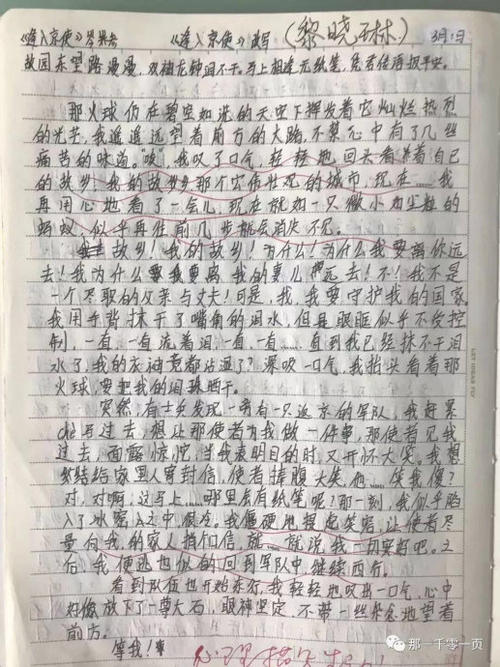 《逢入京使》岑参 《逢入京使》改写 (黎晓琳) 3月1日
故园东望路漫漫，双袖龙钟泪不干。马上相逢无纸笔，凭君传语报平安。
那火球仍在碧空如洗的天空下挥发着它灿烂热烈
的光芒，我遥遥远望着前方的大路，不禁心中有了几丝
痛苦的味道。"唉"，我叹了口气，轻轻地回头看着自己
的故乡！我的故乡那个宏伟壮观的城市，现在……我
再用心地看了一会儿，现在就如一只微小如尘粒的
蚂蚁，似乎再往前几步就会消失不见。
故乡！我的故乡！为什么！为什么我要离你远
去！我为什么要离我的妻儿远去！不！我不是
一个尽职的父亲与丈夫！可是，我，我要守护我的国家。
我用手背抹干了嘴角的泪水，但是眼眶似乎不受控
制，一直，一直流着泪，一直，一直……直到我已经抹不干泪
水了，我的衣袖竟都沾湿了？深吸一口气，我抬头看着那
火球，要把我的泪珠晒干。
突然，有士兵发现一旁有一只返京的军队，我赶紧
che马过去，想让那使者为我做一件事，那使者见我
过去，面露惊慌，当我表明目的时又开怀大笑。我想
给家里人寄封信，使者捧腹大笑，他……笑我傻？
对，对啊，这马上……哪里会有纸笔呢？那一刻，我似乎陷
入了冰窖之中，很冷。我僵硬地提起笑容，让使者尽
量向我的家人捎个口信，就……就说我一切安好吧。之
后，我便逃也似的回到军队中，继续西行。
看到队伍也开始东行，我轻轻地叹出一口气，心中
好像放下了一尊大石，眼神坚定，不带一丝杂念地望着
前方。
等我！
心理描写
那一千零一页